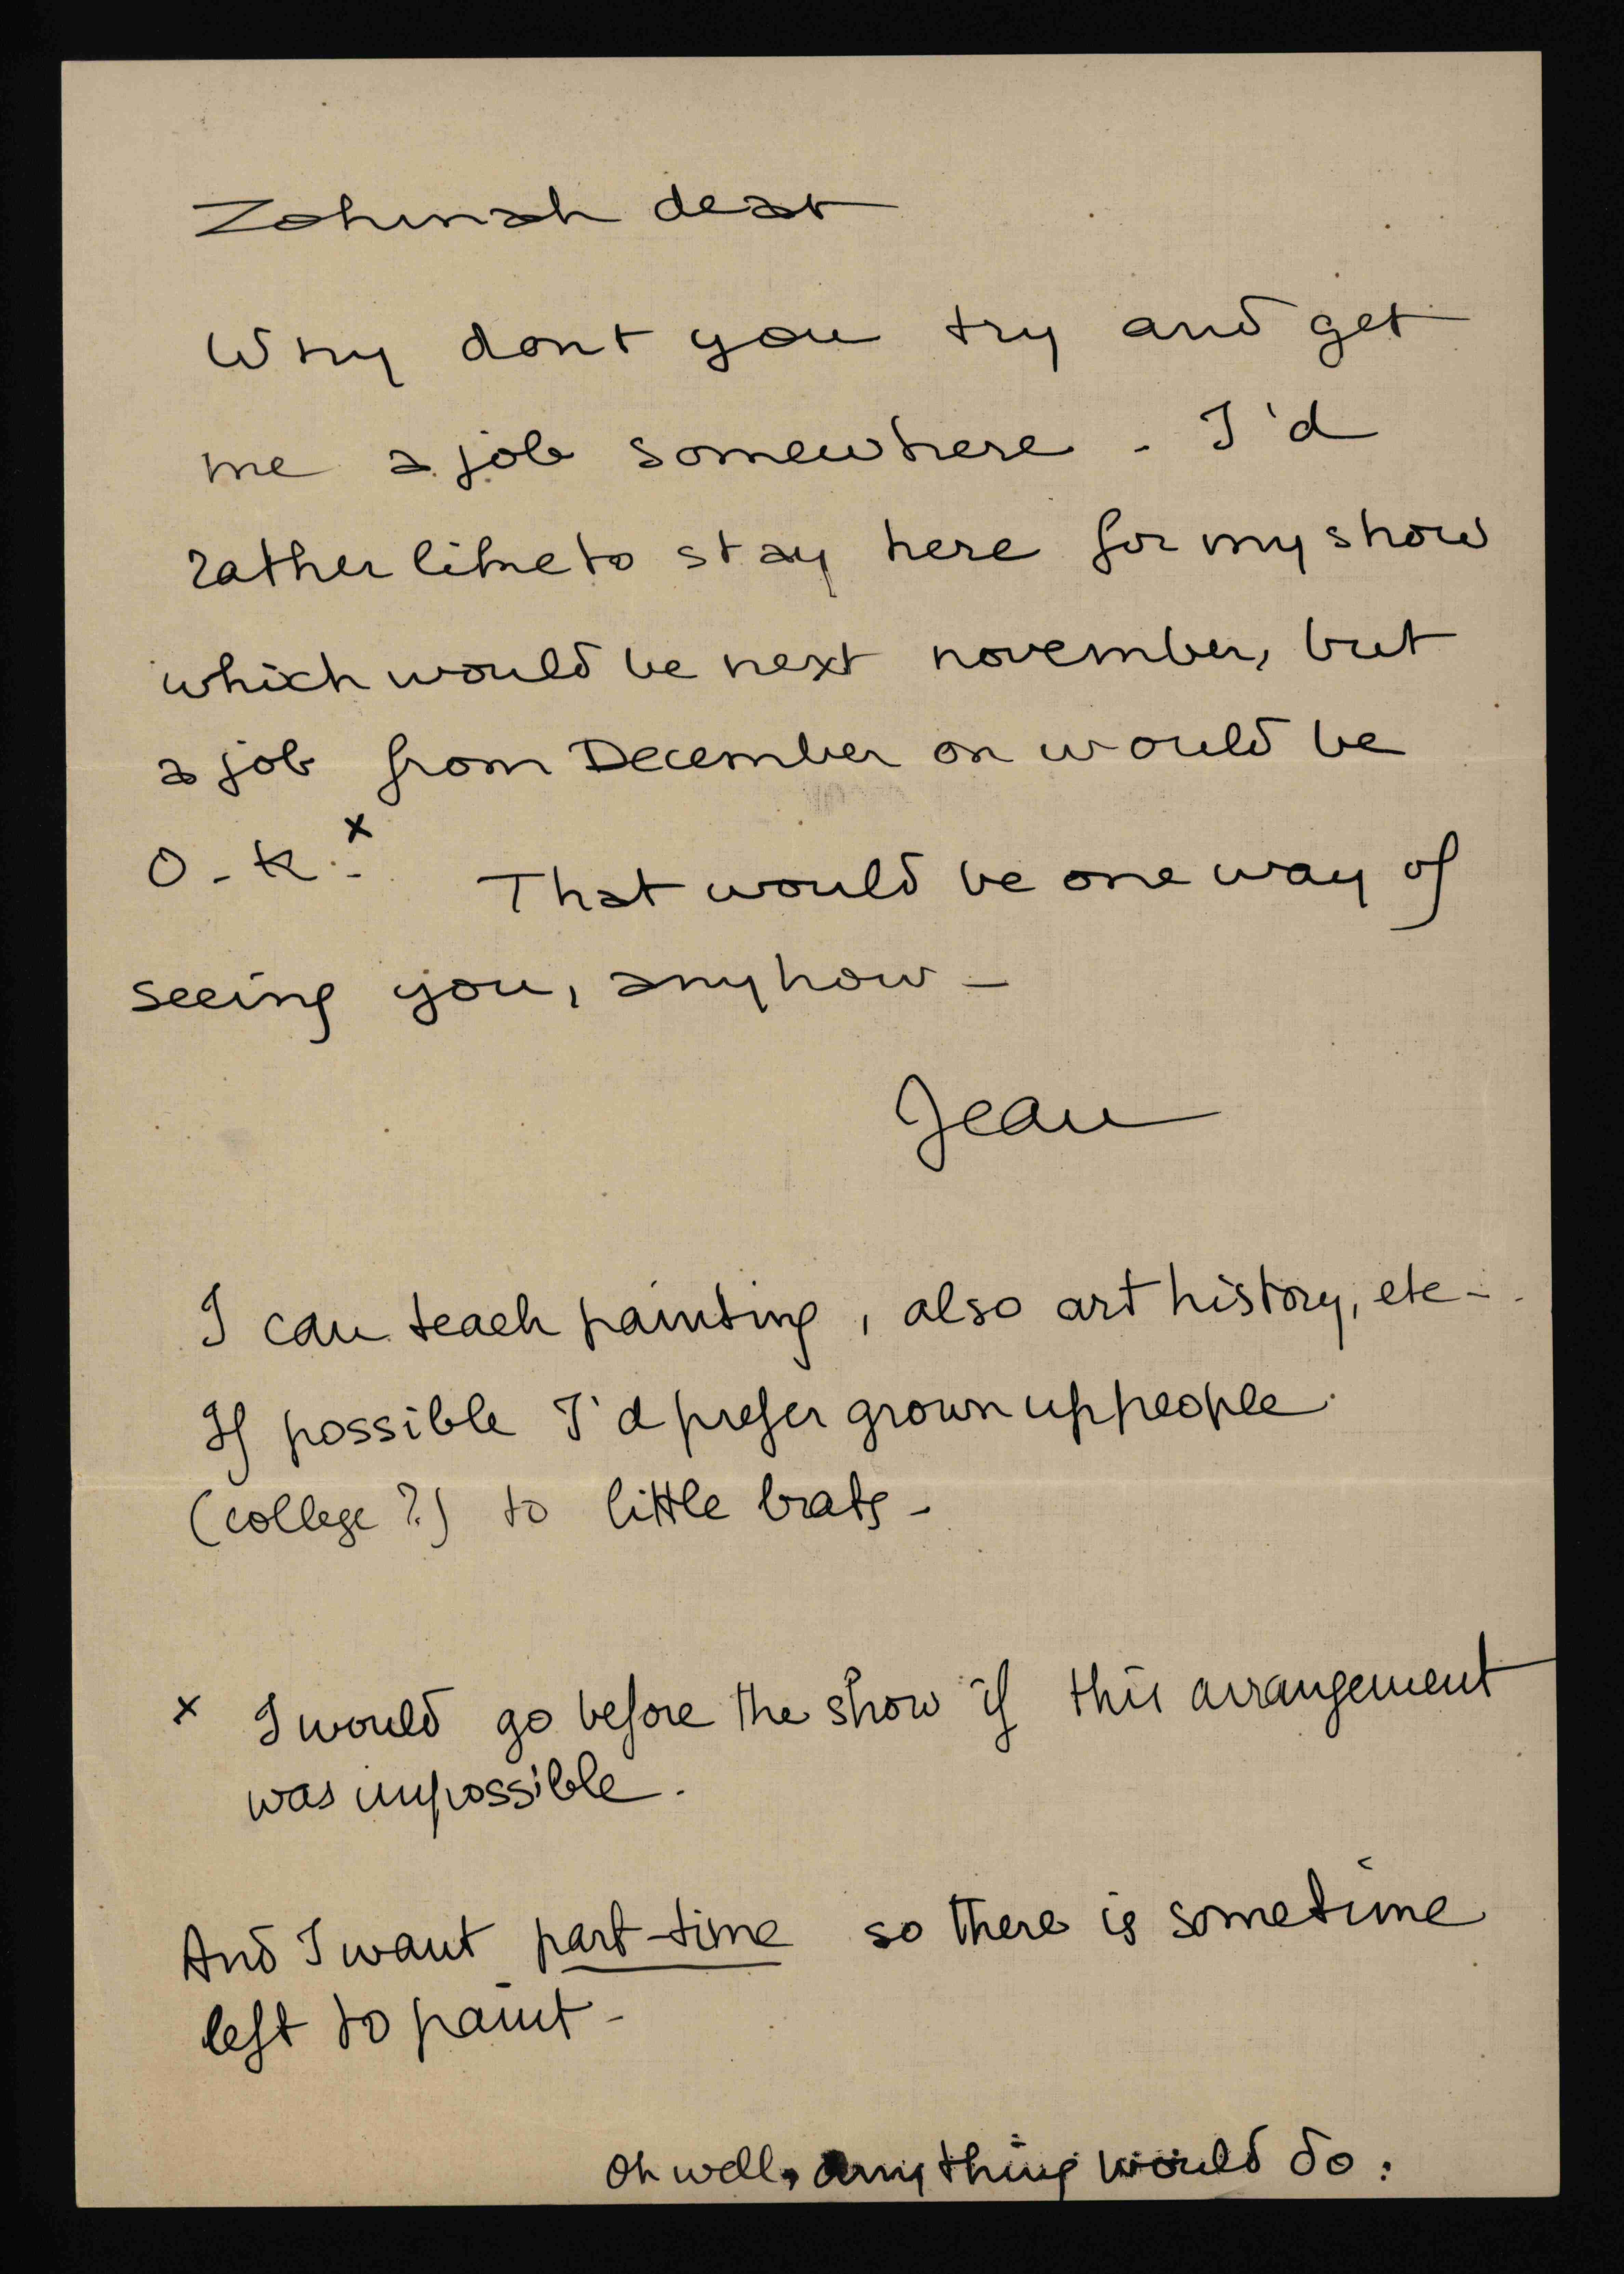 Zohmah dear
Why dont you try and get
me a job somewhere. I'd
rather like to stay here for my show
which would be next november, but
a job from December on would be
O.K.x That would be one way of
seeing you, anyhow -
Jean
I can teach painting, also art history, etc -.
If possible I'd prefer grown up people
(college?) to little brats -
x I would go before the show if this arrangement
was impossible.
And I want part-time so there is sometime
left to paint -
Oh well, anything would do.